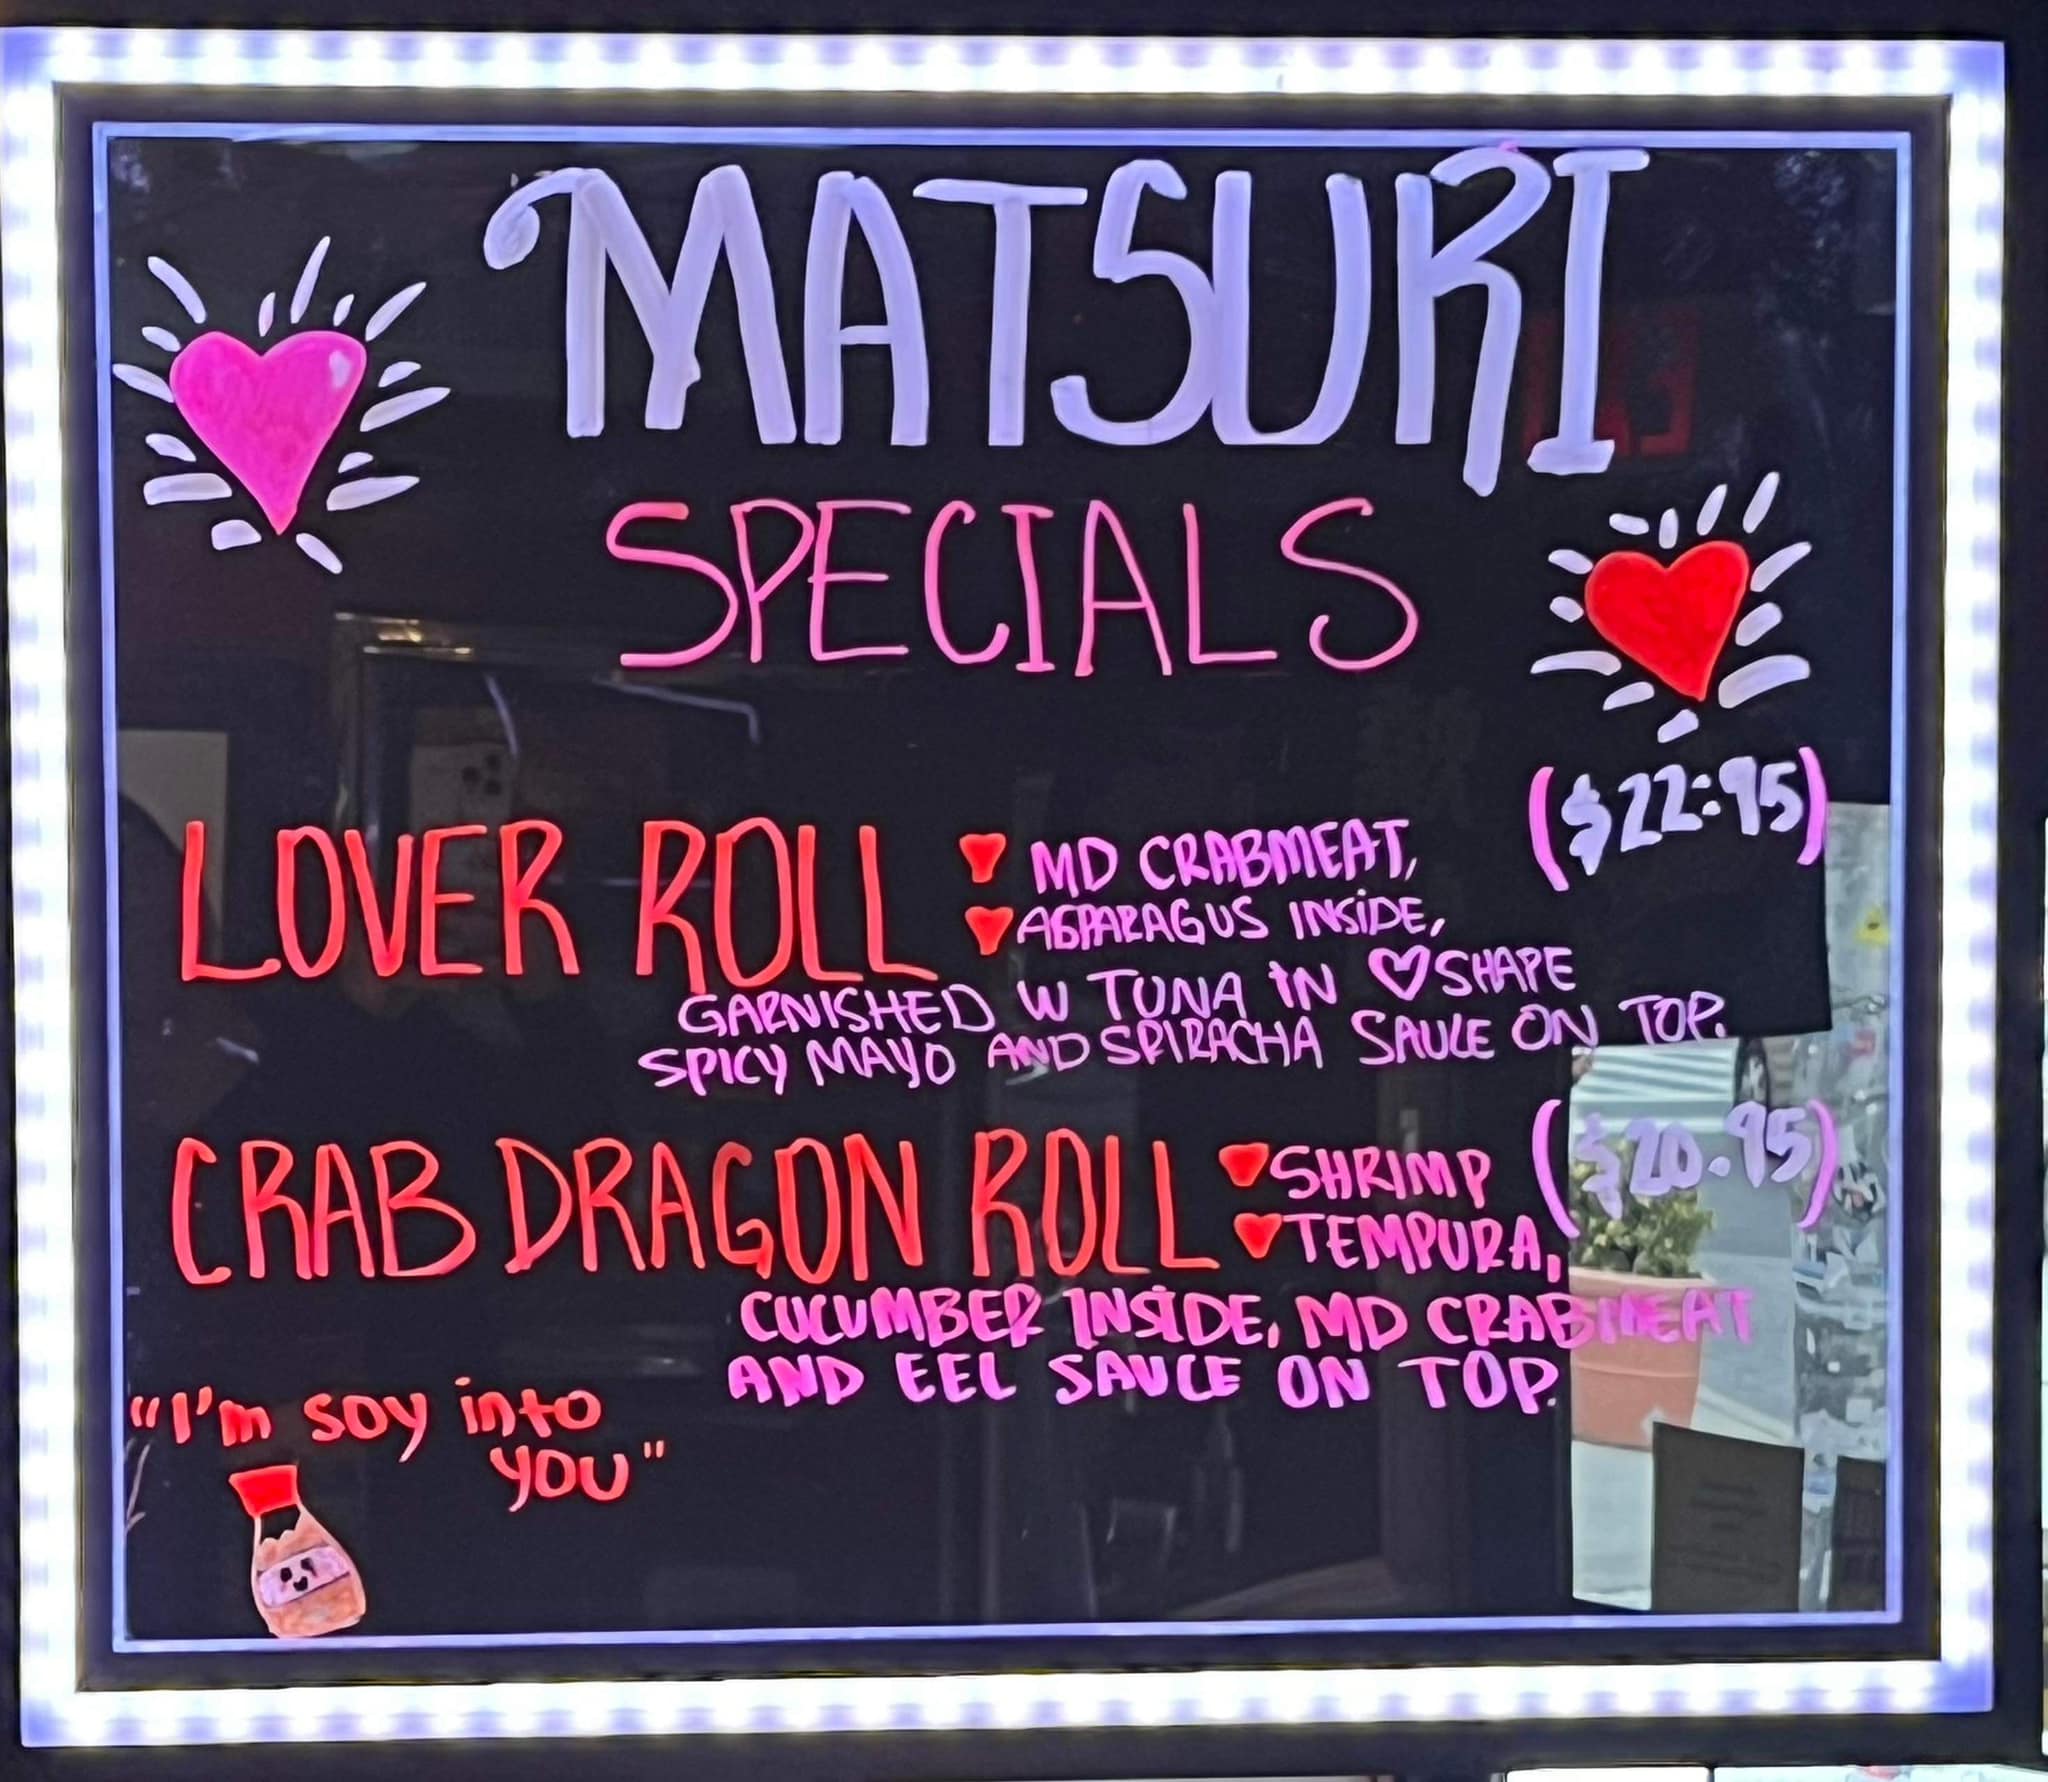 MATSURI
SPECIALS
($22.95)
LOVER ROLL : MD CRABMEAT,
ASPARAGUS INSIDE,
GARNISHED W TUNA IN ♡ SHAPE
SPICY MAYO AND SRIRACHA SAUCE ON TOP.
CRAB DRAGON ROLL : SHRIMP ($20.95)
TEMPURA,
CUCUMBER INSIDE, MD CRABMEAT
AND EEL SAUCE ON TOP.
"I'm soy into
you"